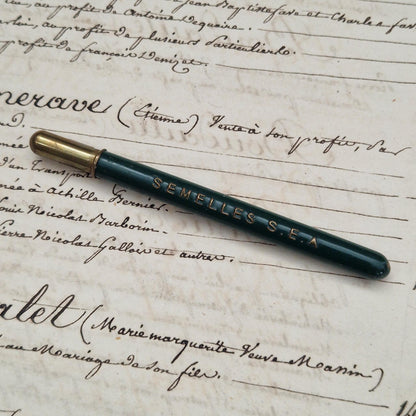 au profit de Antoine
Jean Baptiste
et Charles
au profit de plusieurs Particuliers
profit de françois Denizet.
merave (Etienne) Vente à son profit, par
en Transport
née à Achille Bernier.
Louis Nicolat Barborin.
Pierre Nicolas Gallois et autres.
SEMELLES S.E.A
alet (Marie marguerite Veuve Massin)
au Mariage de son fils.